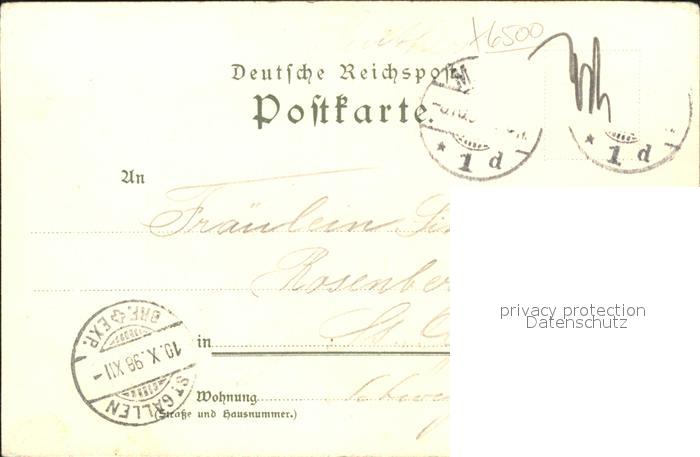 6500
Deutsche Reichspost
Postkarte.
* 1 d
* 1 d
An
Fräulein
Rosenber
privacy protection
Datenschutz
St.
in
BRF. EXP.
10. X. 98. XII -
ST. GALLEN
Wohnung
(Straße und Hausnummer.)